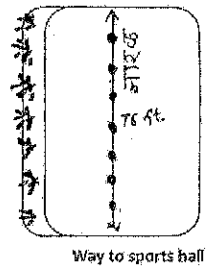 75 ft.
Way to sports hall